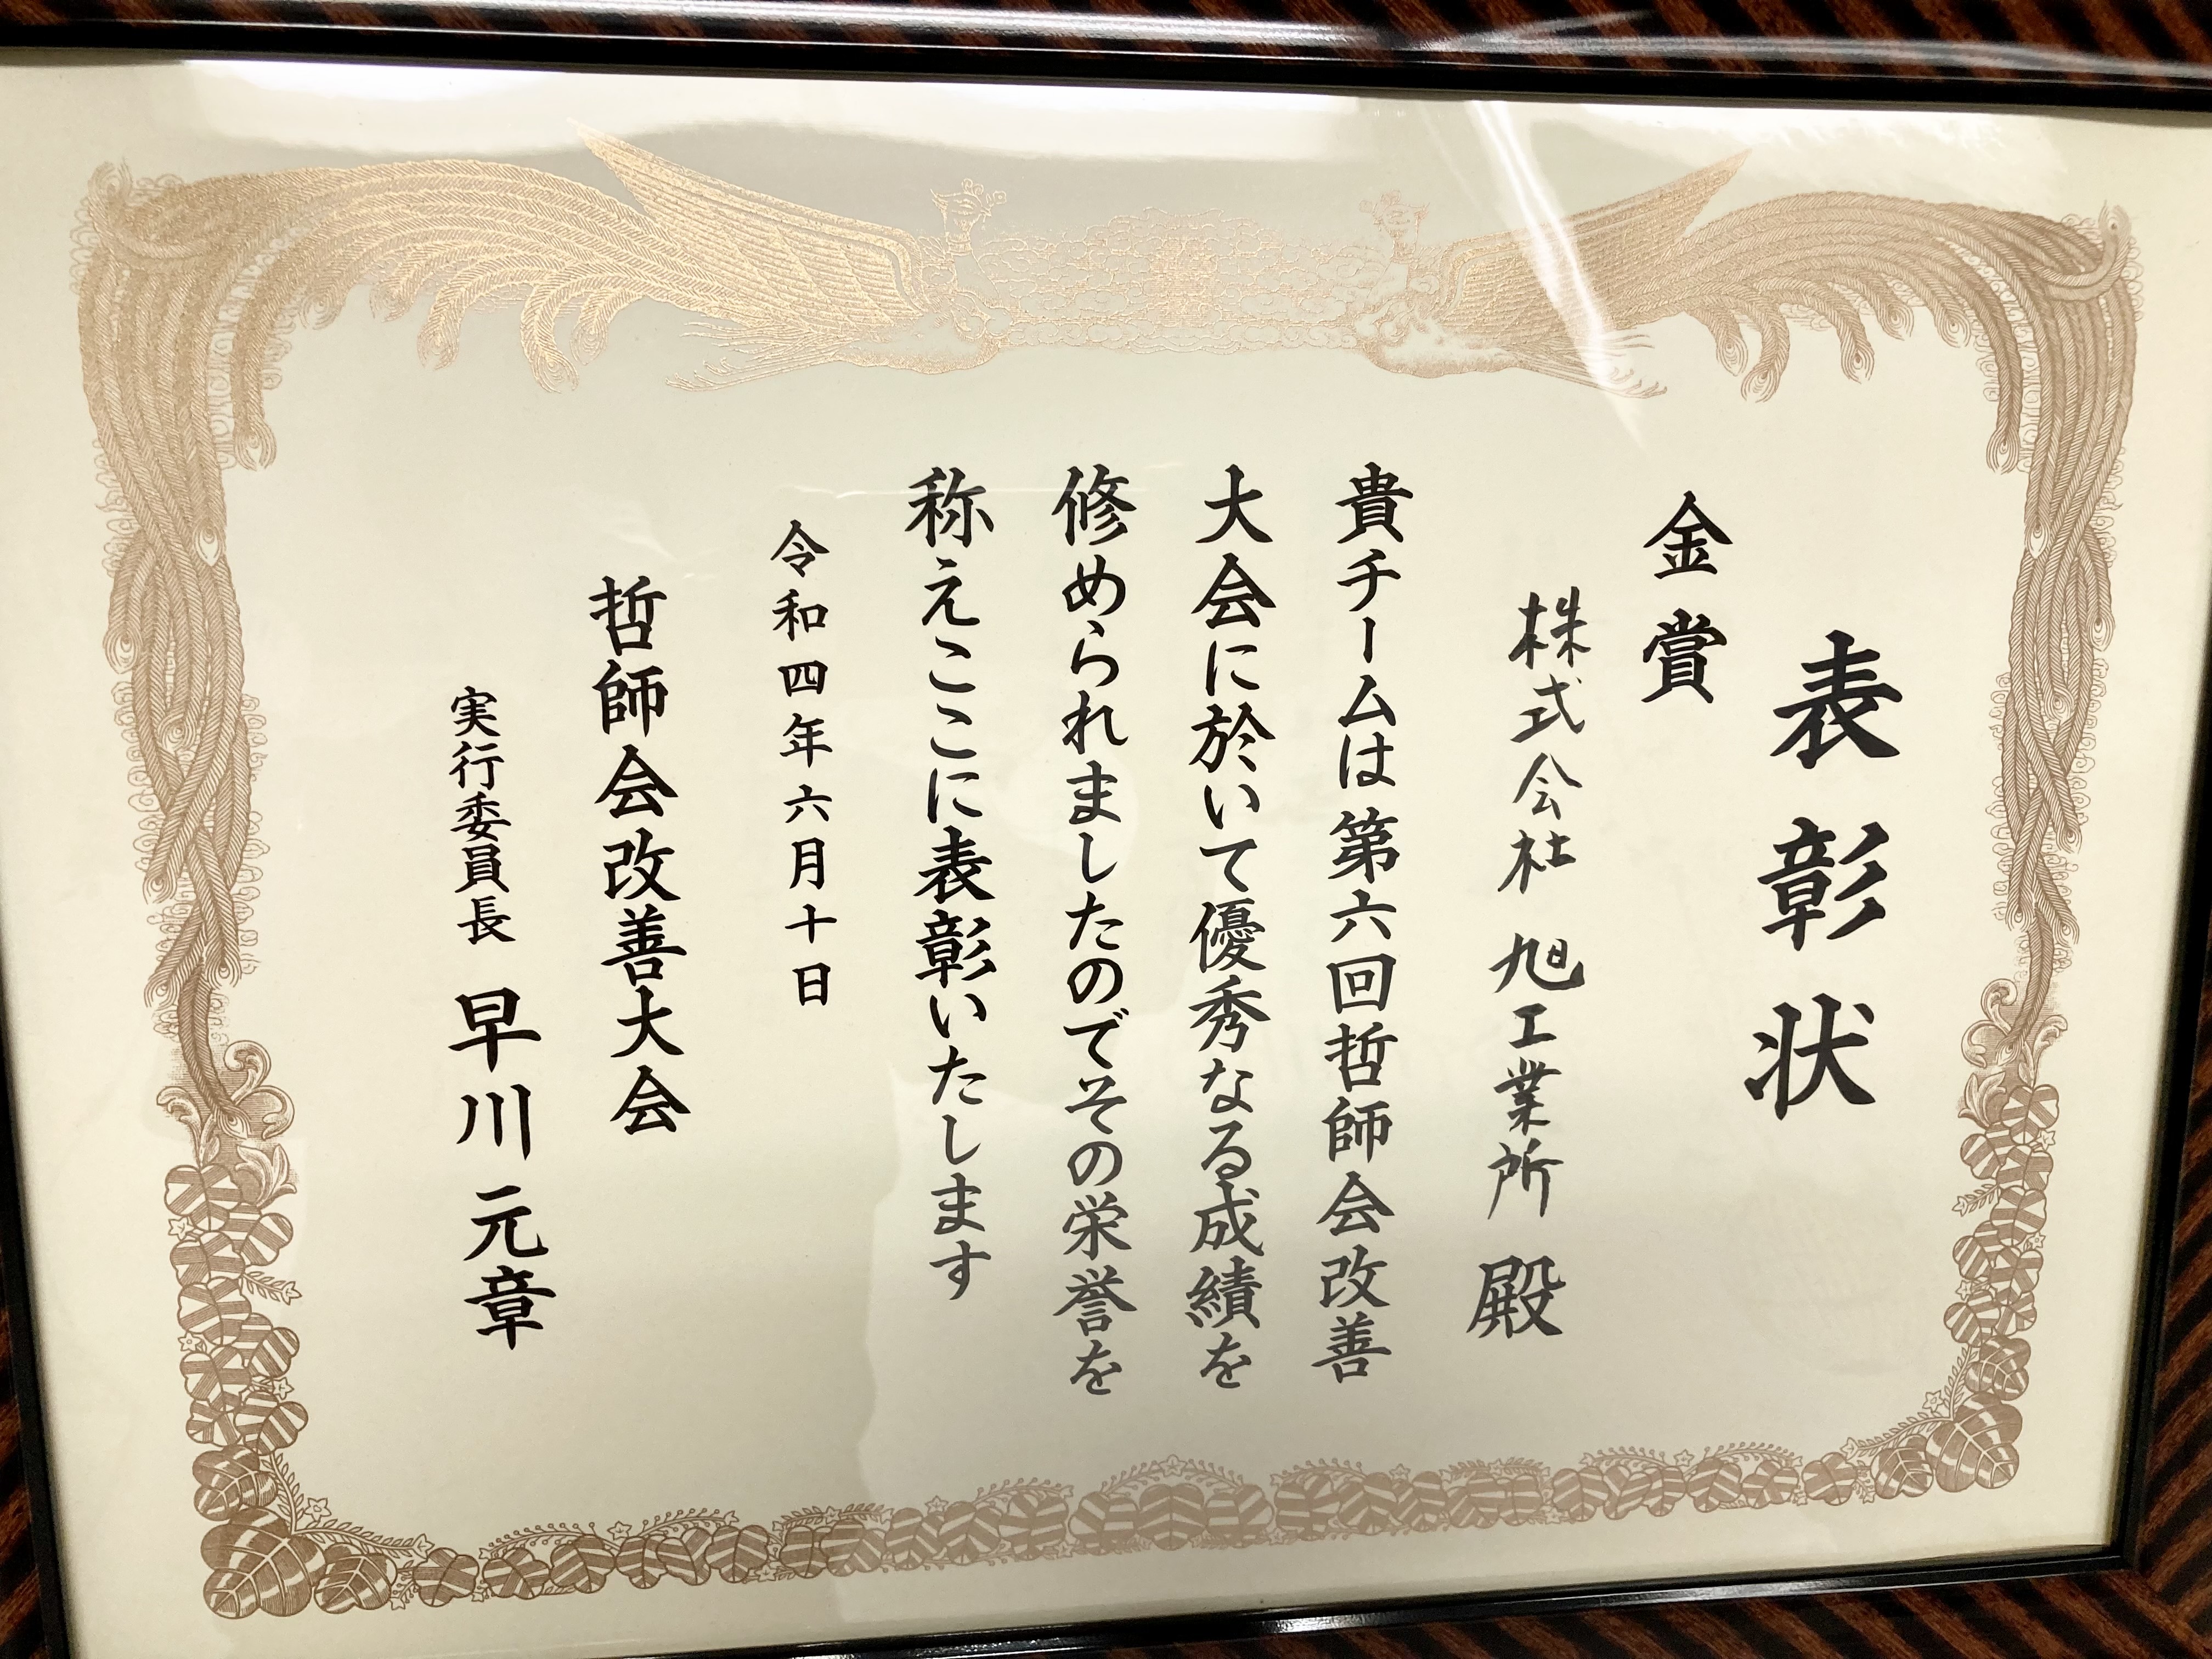 表彰状
金賞
株式会社 旭工業所 殿
貴チームは第六回哲師会改善
大会に於いて優秀なる成績を
修められましたのでその栄誉を
称えここに表彰いたします
令和四年六月十日
哲師会改善大会
実行委員長 早川元章